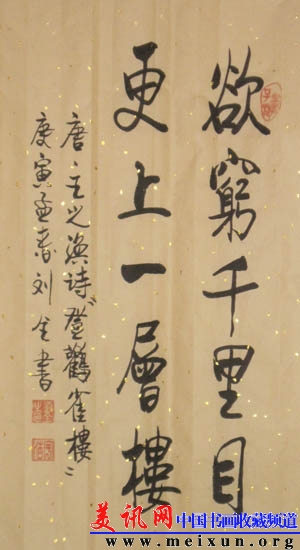 欲窮千里目
更上一層樓
唐王之渙詩登鸛雀樓
庚寅孟春刘生書
美讯网
中国书画收藏频道
www.meixun.org